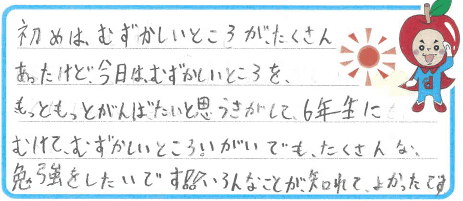 初めは、むずかしいところが、たくさん
あったけど、今日は、むずかしいところを、
もっともっとがんばたいと思うさがして、6年生に
むけて、むずかしいところいがいでも、たくさんな、
勉強をしたいです いろんなことが、知れて、よかったです